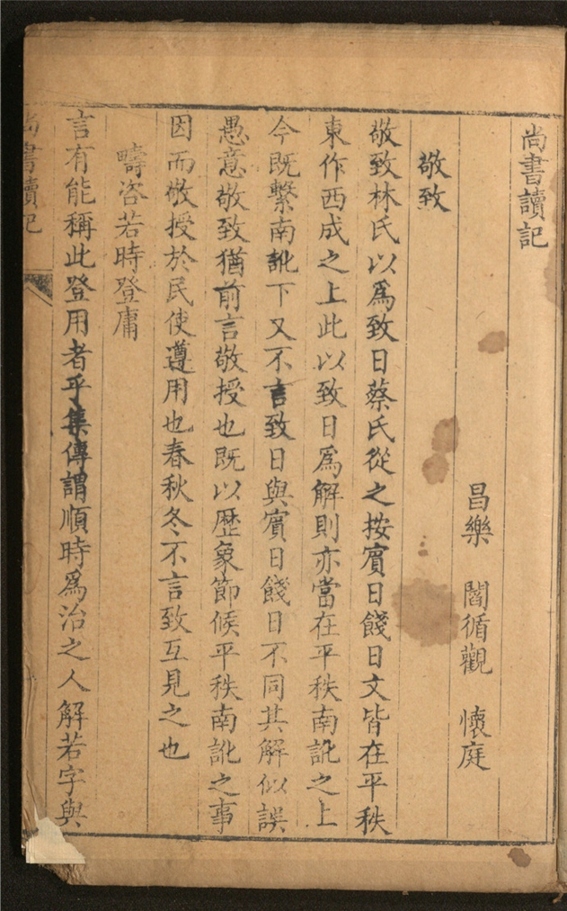 尚書讀記
昌樂 閻循觀 懷庭
敬致
敬致林氏以爲致日蔡氏從之按賓日餞日文皆在平秩
東作西成之上此以致日爲解則亦當在平秩南訛之上
今既繫南訛下又不言致日與賓日餞日不同其解似誤
愚意敬致猶前言敬授也既以歴象節候平秩南訛之事
因而敬授於民使遵用也春秋冬不言致互見之也
疇咨若時登庸
言有能稱此登用者乎集傳謂順時爲治之人解若字與
尚書讀記